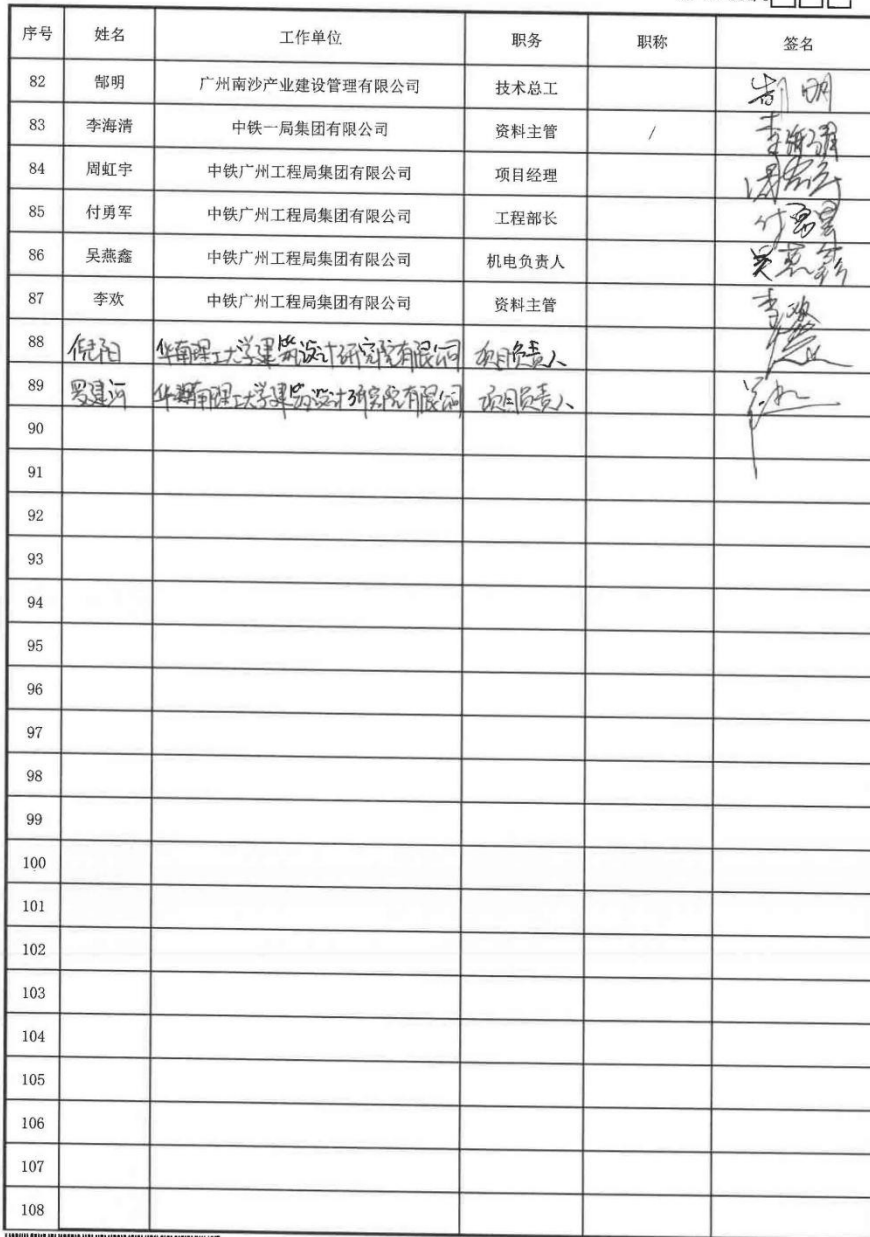 序号 姓名 工作单位 职务 职称 签名
82 郜明 广州南沙产业建设管理有限公司 技术总工 郜明
83 李海清 中铁一局集团有限公司 资料主管 / 李海清
84 周虹宇 中铁广州工程局集团有限公司 项目经理
85 付勇军 中铁广州工程局集团有限公司 工程部长 付勇军
86 吴燕鑫 中铁广州工程局集团有限公司 机电负责人 吴燕鑫
87 李欢 中铁广州工程局集团有限公司 资料主管 李欢
88 倪阳 华南理工大学建筑设计研究院有限公司 项目负责人
89 罗建河 华南理工大学建筑设计研究院有限公司 项目负责人
90
91
92
93
94
95
96
97
98
99
100
101
102
103
104
105
106
107
108